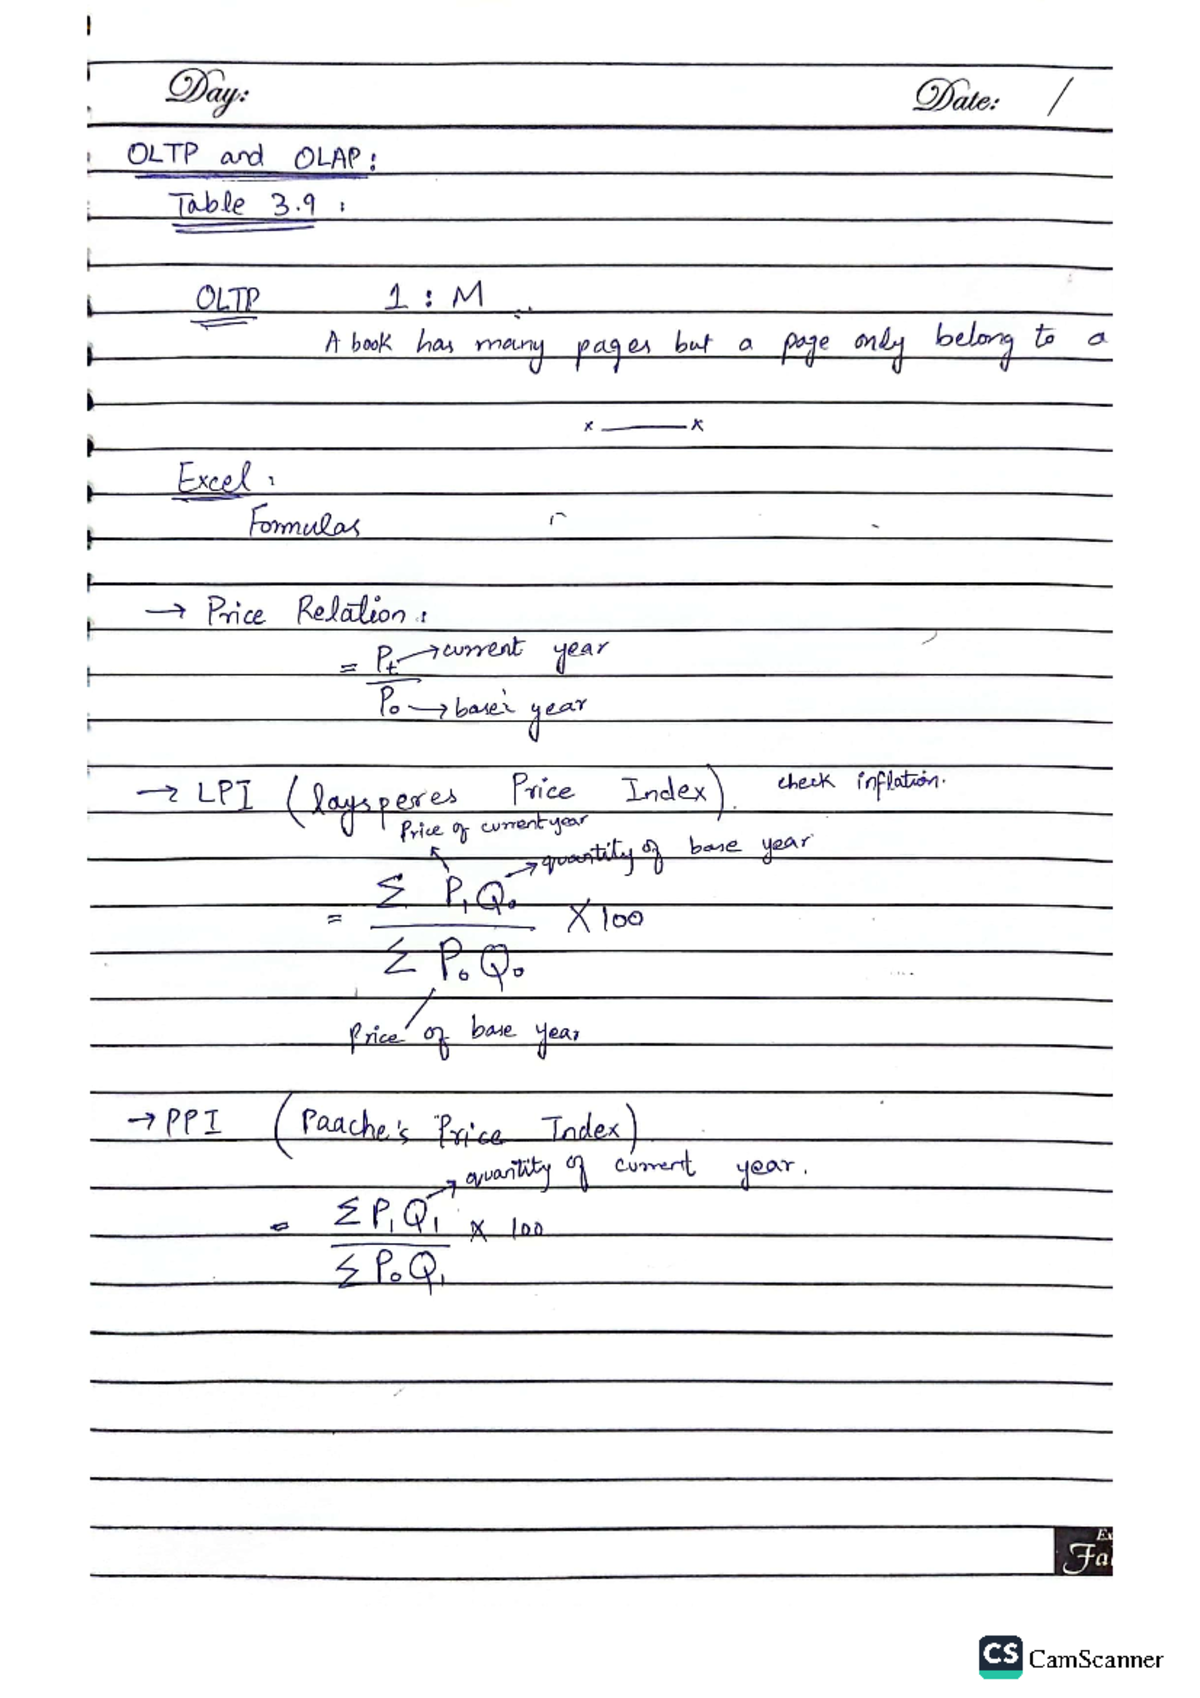 Day: Date: /
OLTP and OLAP:
Table 3.9 :
OLTP 1 : M
A book has many pages but a page only belong to a
x ——— x
Excel :
Formulas
→ Price Relation :
= Pt → current year
P0 → base year
→ LPI (laysperes Price Index). check inflation.
Price of current year
→ quantity of base year
= Σ P1 Q0 X 100
Σ P0 Q0
Price of base year
→ PPI (Paache's Price Index)
→ quantity of current year.
= Σ P1 Q1 X 100
Σ P0 Q1
Ex
Fa
CS CamScanner